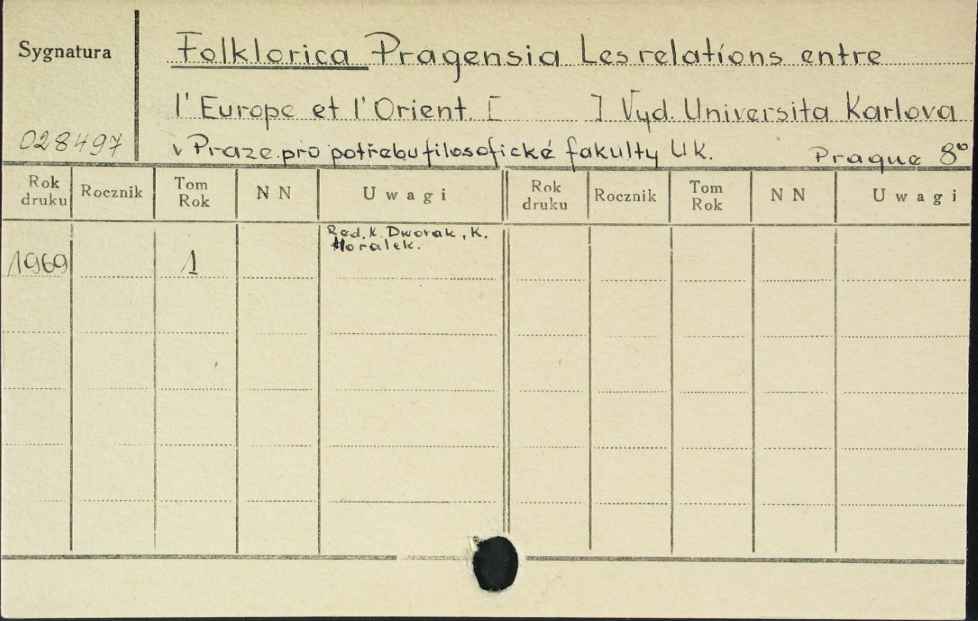 Sygnatura
Folklorica Pragensia Les relations entre
l'Europe et l'Orient. [ ] Vyd. Universita Karlova
028497
v Praze pro potřebu filosofické fakulty UK. Prague 8°
Rok druku Rocznik Tom Rok NN Uwagi Rok druku Rocznik Tom Rok NN Uwagi
Red. K. Dworak, K.
Horalek.
1969 1